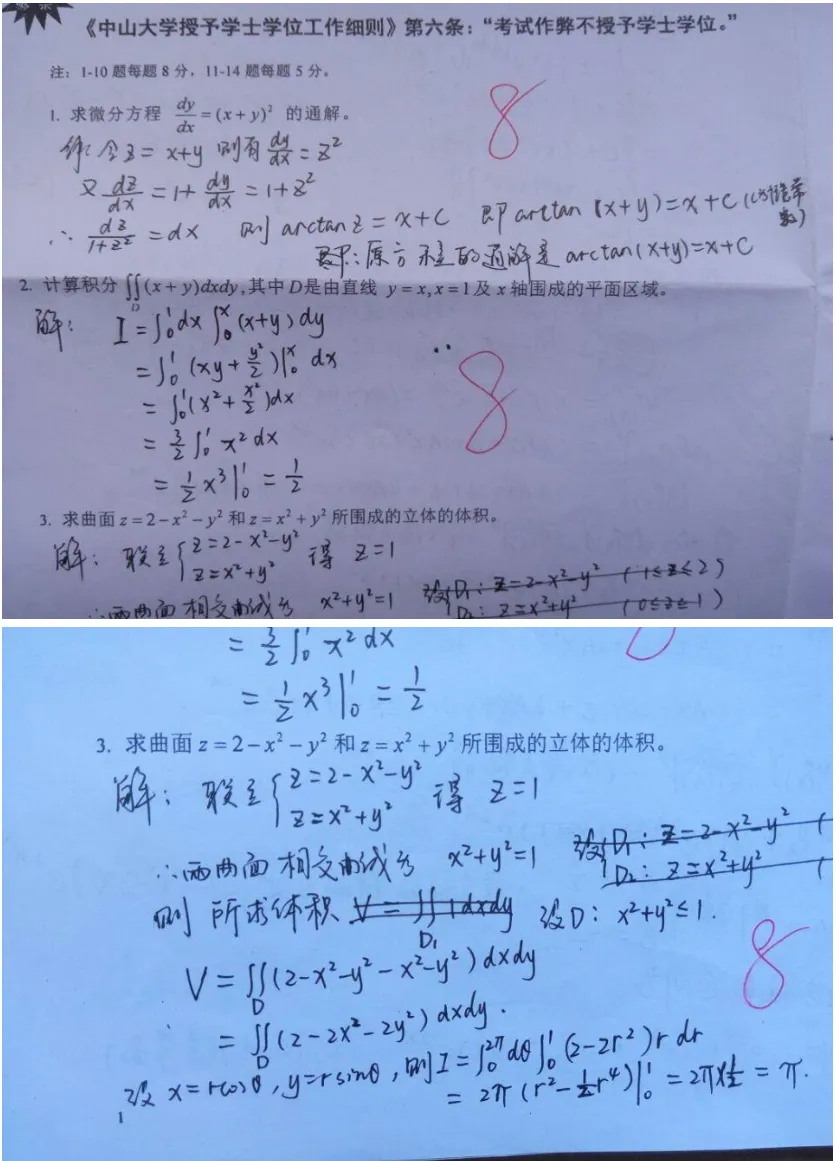 《中山大学授予学士学位工作细则》第六条：“考试作弊不授予学士学位。”
注：1-10 题每题 8 分，11-14 题每题 5 分。
8
1. 求微分方程 dy/dx = (x + y)² 的通解。
解: 令z = x+y 则有 dy/dx = z²
又 dz/dx = 1+ dy/dx = 1+z²
∴ dz/(1+z²) = dx 则 arctan z = x+C 即 arctan (x+y)=x+C (C为任意常数)
即:原方程的通解是 arctan(x+y)=x+C
2. 计算积分 ∬_D (x + y)dxdy,其中 D是由直线 y = x, x = 1 及 x 轴围成的平面区域。
解: I = ∫₀¹dx ∫₀ˣ (x+y) dy
= ∫₀¹ (xy + y²/2)|₀ˣ dx
8
= ∫₀¹(x² + x²/2)dx
= 3/2 ∫₀¹ x² dx
= 1/2 x³|₀¹ = 1/2
3. 求曲面 z = 2 − x² − y² 和 z = x² + y² 所围成的立体的体积。
解: 联立 { z=2-x²-y² 得 z=1
z=x²+y²
∴两曲面相交曲线为 x²+y²=1 设 D₁: z=2-x²-y² (1≤z≤2)
D₂: z=x²+y² (0≤z≤1)
= 3/2 ∫₀¹ x² dx
= 1/2 x³|₀¹ = 1/2
3. 求曲面 z = 2 − x² − y² 和 z = x² + y² 所围成的立体的体积。
解: 联立 { z=2-x²-y² 得 z=1
z=x²+y²
∴两曲面相交曲线为 x²+y²=1 设 D₁: z=2-x²-y² (
D₂: z=x²+y² (
则 所求体积 V = ∬_D₁ 1dxdy 设D: x²+y²≤1.
8
V = ∬_D (2-x²-y²-x²-y²) dxdy
= ∬_D (2-2x²-2y²) dxdy.
设 x=rcosθ, y=rsinθ, 则I = ∫₀^2π dθ ∫₀¹ (2-2r²) r dr
= 2π (r² - 1/2 r⁴)|₀¹ = 2π×1/2 = π.
1